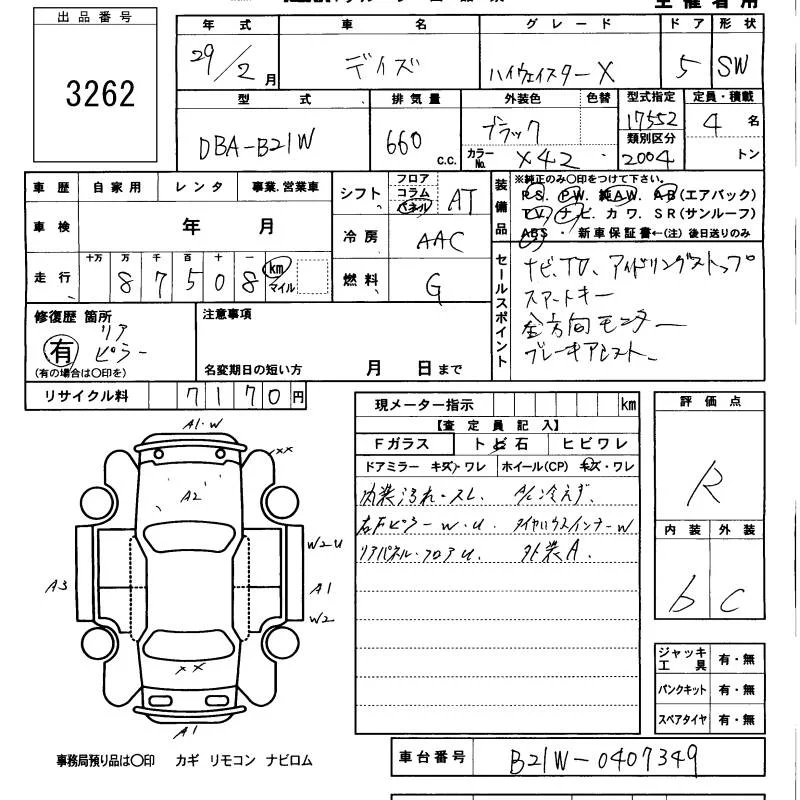 出品番号
3262
年式 車名 グレード ドア 形状
29/2月 デイズ ハイウェイスターX 5 SW
型式 排気量 外装色 色替 型式指定 定員・積載
DBA-B21W 660 c.c. ブラック 17552 4名
カラーNo. X42 類別区分 2004 トン
車歴 自家用 レンタ 事業.営業車
車検 年 月
走行 十万 万 千 百 十 一
87508 km マイル
シフト フロア コラム パネル AT
冷房 AAC
燃料 G
装備品 ※純正のみ〇印をつけて下さい。
P.S. P.W. 純A.W. A.B(エアバック)
T.V. ナビ. カワ. S.R(サンルーフ)
ABS ・ 新車保証書←(注) 後日送りのみ
セールスポイント
ナビ、TV、アイドリングストップ
スマートキー
全方向モニター
ブレーキアシスト、
修復歴 箇所
有 リア ピラー
(有の場合は〇印を)
注意事項
名変期日の短い方 月 日まで
リサイクル料 7170円
A1.W
××
A2
W2U
A3
A1
W2
××
A1
事務局預り品は〇印 カギ リモコン ナビロム
現メーター指示 km
【査定員記入】
Fガラス トビ石 ヒビワレ
ドアミラー キズ・ワレ ホイール(CP) キズ・ワレ
内装汚れ・スレ A/C冷えず.
右Fピラー W.U. タイヤハウスインナーW
リアパネル・フロアU. 外装A.
評価点
R
内装 外装
b C
ジャッキ工具 有・無
パンクキット 有・無
スペアタイヤ 有・無
車台番号 B21W-0407349